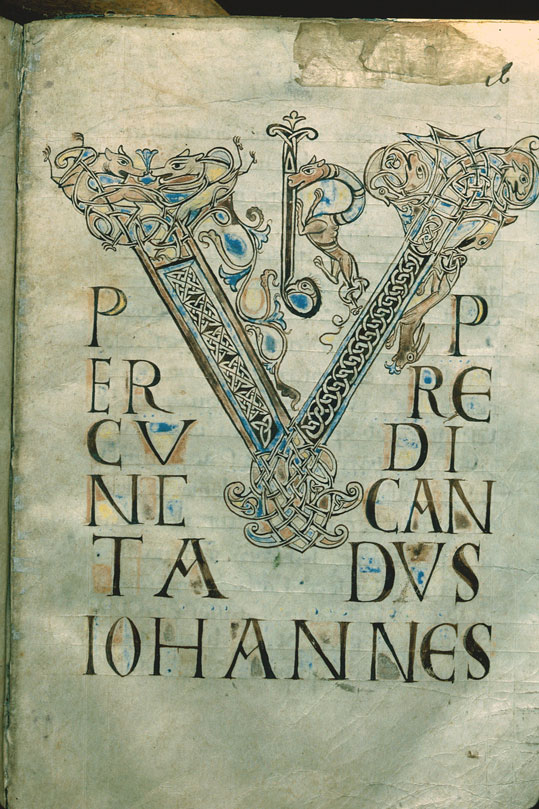 VR
P
ER
CV
NE
TA
P
RE
DI
CAN
DVS
IOHANNES